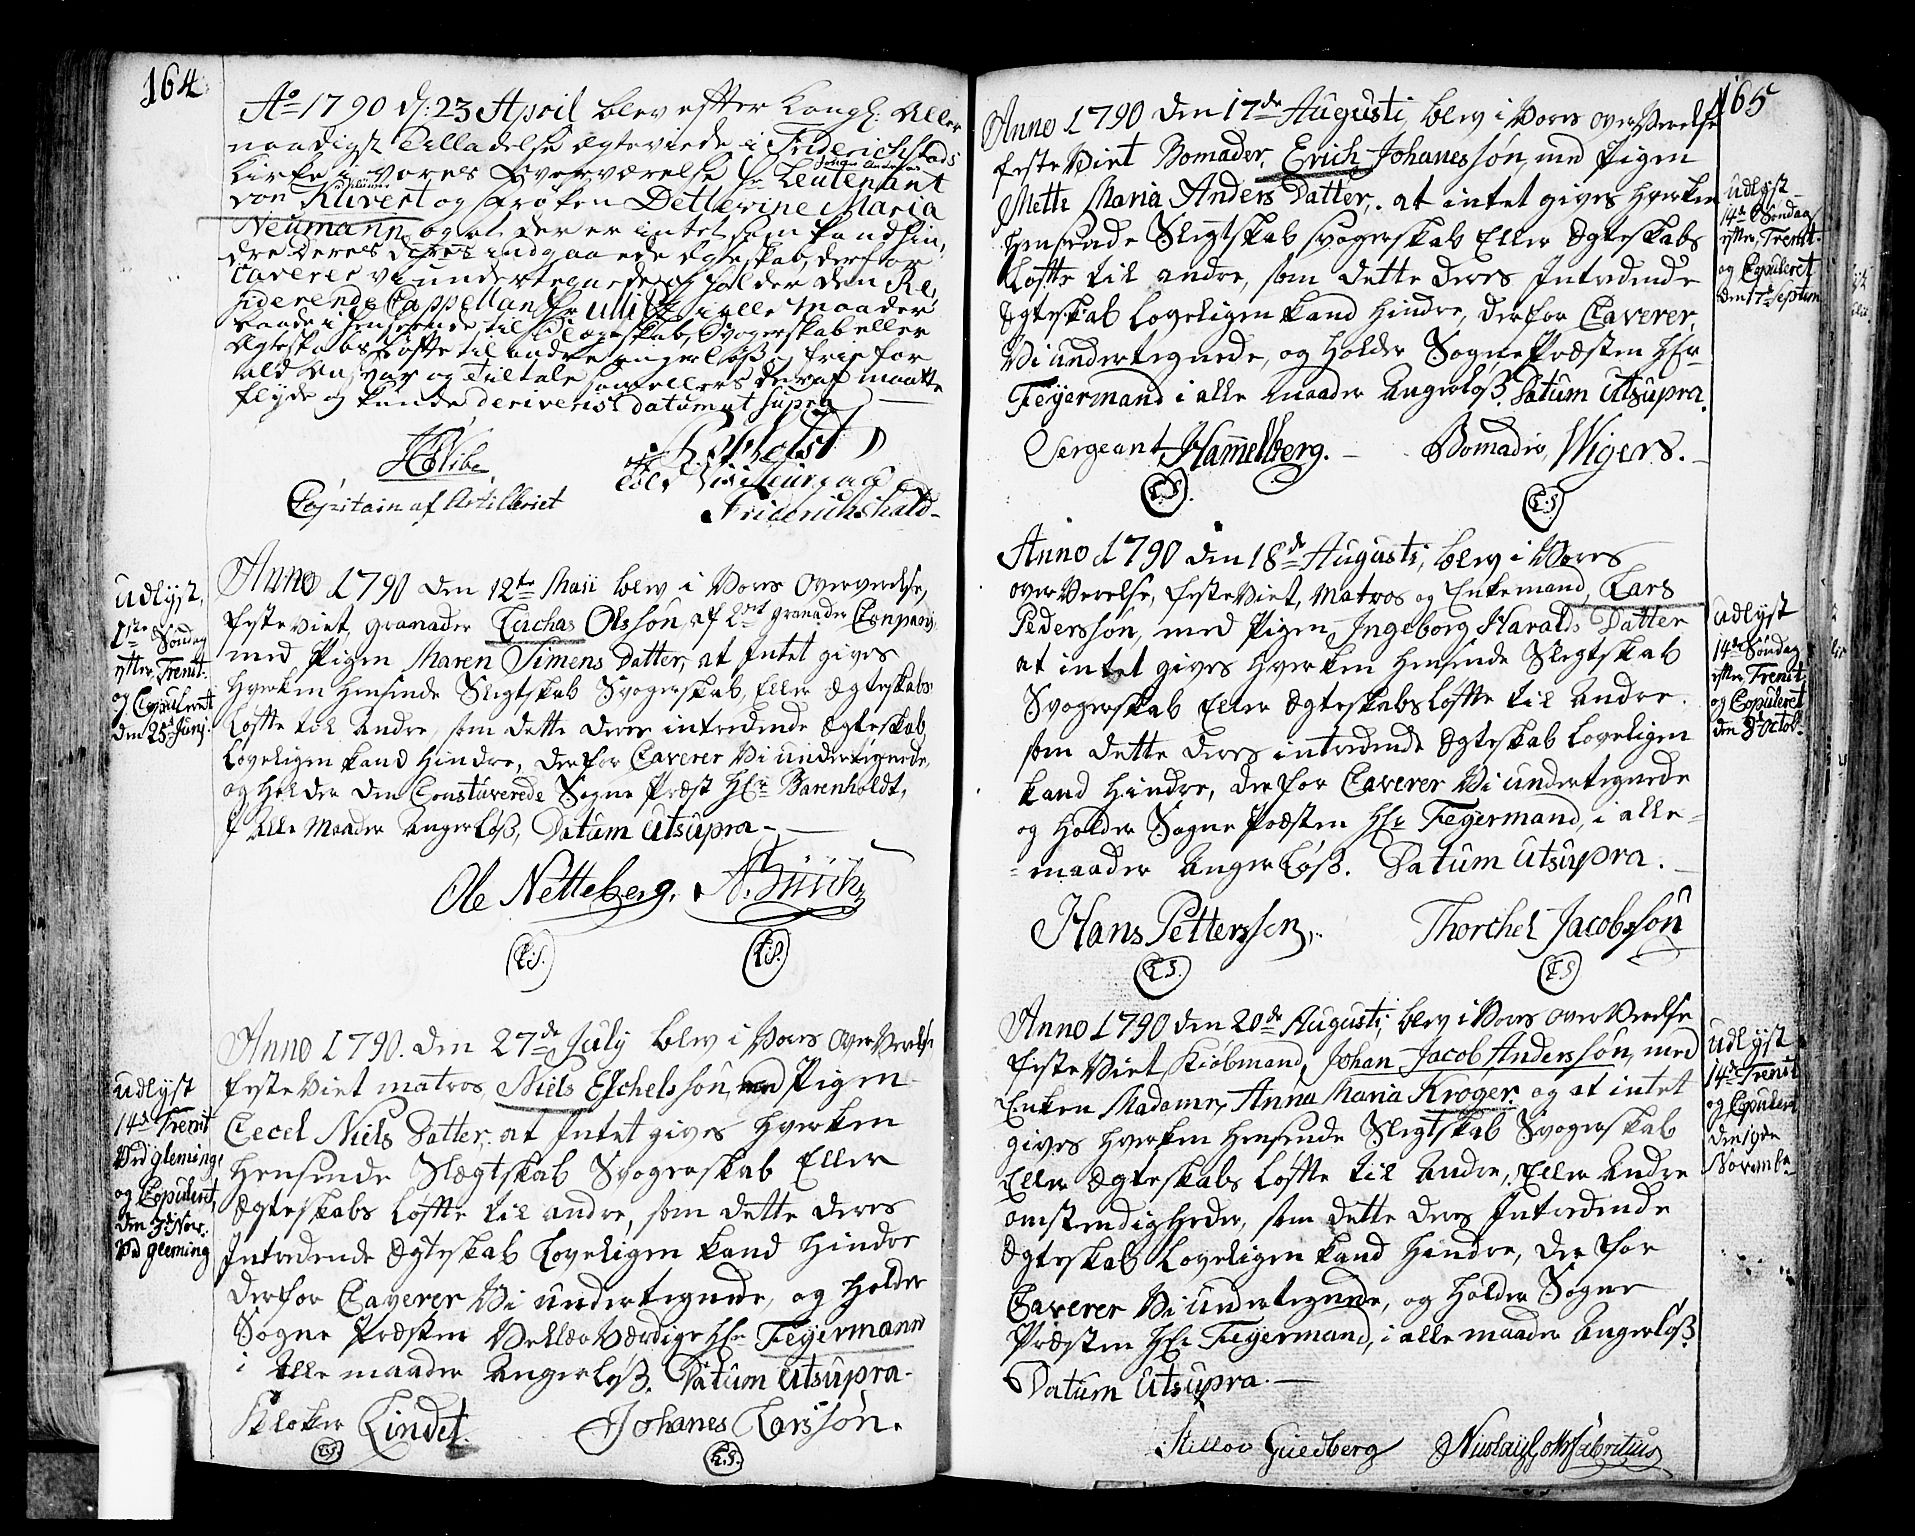 164
Ao 1790 d: 23 April blev efter Kongl: Aller
naadigst Tilladelse Egteviede i Friderichstads
Kirke i vores Overværelse Hr Leutenant
von Klüvert og Frøken Dethlevine Maria
Neumann og at der er intet som kand hin,
dre deres indgaaede Egteskab, derfor
Caverer vi undertegnede og holder den Re,
siderende Cappellan Hr i alle Maader
baade i henseende til Slegteskab, Svogerskab eller
Egteskabs Løfte til andre angerløs og frie for
ald An,svar og Tiltale som ellers deraf maatte
flyde og kunde deriveris datum ut supra
Capitain af Artilleriet
Friderichshald
Udlyst,
1ste Søndag
efter Trenit:
og Copuleret
den 25de Junj.
Anno 1790 den 12te Maii blev i Vores Oververelse,
festeviet, granader Luchas Olssøn af 2det granader Compani,
med Pigen Maren Simens Datter, at Intet gives
hverken henseende Slegtskab Svogerskab, Eller Egteskabs
Løfte til Andre, som dette deres intredende Egteskab
Loveligen kand hindre, derfor Caverer Vi undertegnede,
og holder den Constuverede Sogne Præst Hr Barenholdt,
I alle Maader Angerløs, Datum Utsupra
Ole Netteberg.
L.S.
L.S.
Udlyst
14de Trenit
Ved gleming
og Copuleret,
den 3de Novr.
Ved gleming
Anno 1790. den 27de July blev i Vores OverVerelse
festeViet matros Niels Eschelssøn, med Pigen
Cecel Niels Datter, at Intet gives hverken
henseende Slægtskab Svogerskab Eller
Egteskabs Løfte til andre, som dette deres
Intredende Egteskab Loveligen kand hindre
derfor Caverer Vi undertegnede, og holder
Sogne Præsten VelLærVærdige Hr Feyermann
i Alle maader Angerløs. Datum Utsupra.
Kloker Lindet. Johanes Larssøn.
L.S. L.S.
165
Anno 1790 den 17de Augusti, blev i Vores OverVerelse
festeViet Bomader, Erich Johanessøn, med Pigen
Mette Maria Anders Datter, at intet gives hverken
henseende Slegtskab svogerskab Eller Egteskabs
Løfte til andre, som dette deres Intredende
Egteskab Loveligen kand hindre, derfor Caverer,
Vi undertegnede, og holder Sogne Præsten Hr
Feyermand i alle maader Angerløs. Datum Utsupra.
Udlyst
14de Søndag
efter, Trenit.
og Copuleret
den 17de Septem
Sergeant Hammelberg. Bomader, Wigers.
L.S. L.S.
Anno 1790 den 18de Augusti, blev i Vores
overVerelse, festeViet, Matros og Enkemand, Lars
Pederssøn, med Pigen Ingeborg Haralds Datter
at intet gives hverken henseende Slegtskab
Svogerskab Eller Egteskabs Løfte til Andre.
som dette deres intredende Egteskab Loveligen
kand hindre, derfor Caverer Vi undertegnede
og holder Sogne Præsten Hr Feyermand, i alle
maader Angerløs. Datum Utsupra.
Udlyst
14de Søndag
efter, Trenit
og Copuleret
den 8de Octob.
Hans Petterssen, Thorchel Jacobssøn
L.S. L.S.
Anno 1790 den 20de Augusti, blev i Vores OverVerelse
festeViet Kiøbmand, Johan Jacob Anderssøn, med
Enken Madame, Anna Maria Krøger. og at intet
gives hverken henseende Slegtskab Svogerskab
Eller Egteskabs Løfte til Andre, Eller Andre
omstendigheder, som dette deres Intredende
Egteskab Loveligen kand hindre, derfor
Caverer Vi undertegnede, og holder Sogne
Præsten Hr Feyermand, i alle maader Angerløs
Datum Utsupra.
Udlyst
14de Trenit
og Copuleret
Novemb.
Guldberg